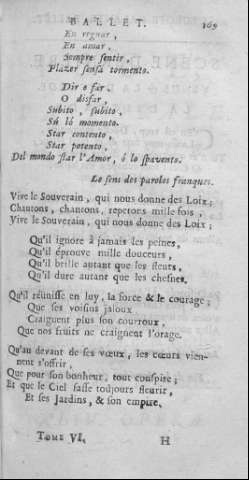 BALLET. 169
En regnar,
En amar,
Sempre sentir,
Plazer sensa tormento.
Dir e far,
O disfar,
Subito, subito,
Sù lo momento.
Star contento,
Star potento,
Del mondo star l'Amor, é lo spavento.
Le sens des paroles franques.
Vive le Souverain, qui nous donne des Loix;
Chantons, chantons, repetons mille fois,
Vive le Souverain, qui nous donne des Loix;
Qu'il ignore à jamais les peines,
Qu'il éprouve mille douceurs,
Qu'il brille autant que les fleurs,
Qu'il dure autant que les chesnes.
Qu'il réünisse en luy, la force & le courage;
Que ses voisins jaloux
Craignent plus son couroux,
Que nos fruits ne craignent l'orage.
Qu'au devant de ses vœux, les cœurs vien-
nent s'offrir,
Que pour son bonheur, tout conspire;
Et que le Ciel fasse toûjours fleurir,
Et ses Jardins, & son empire.
TOME VI. H